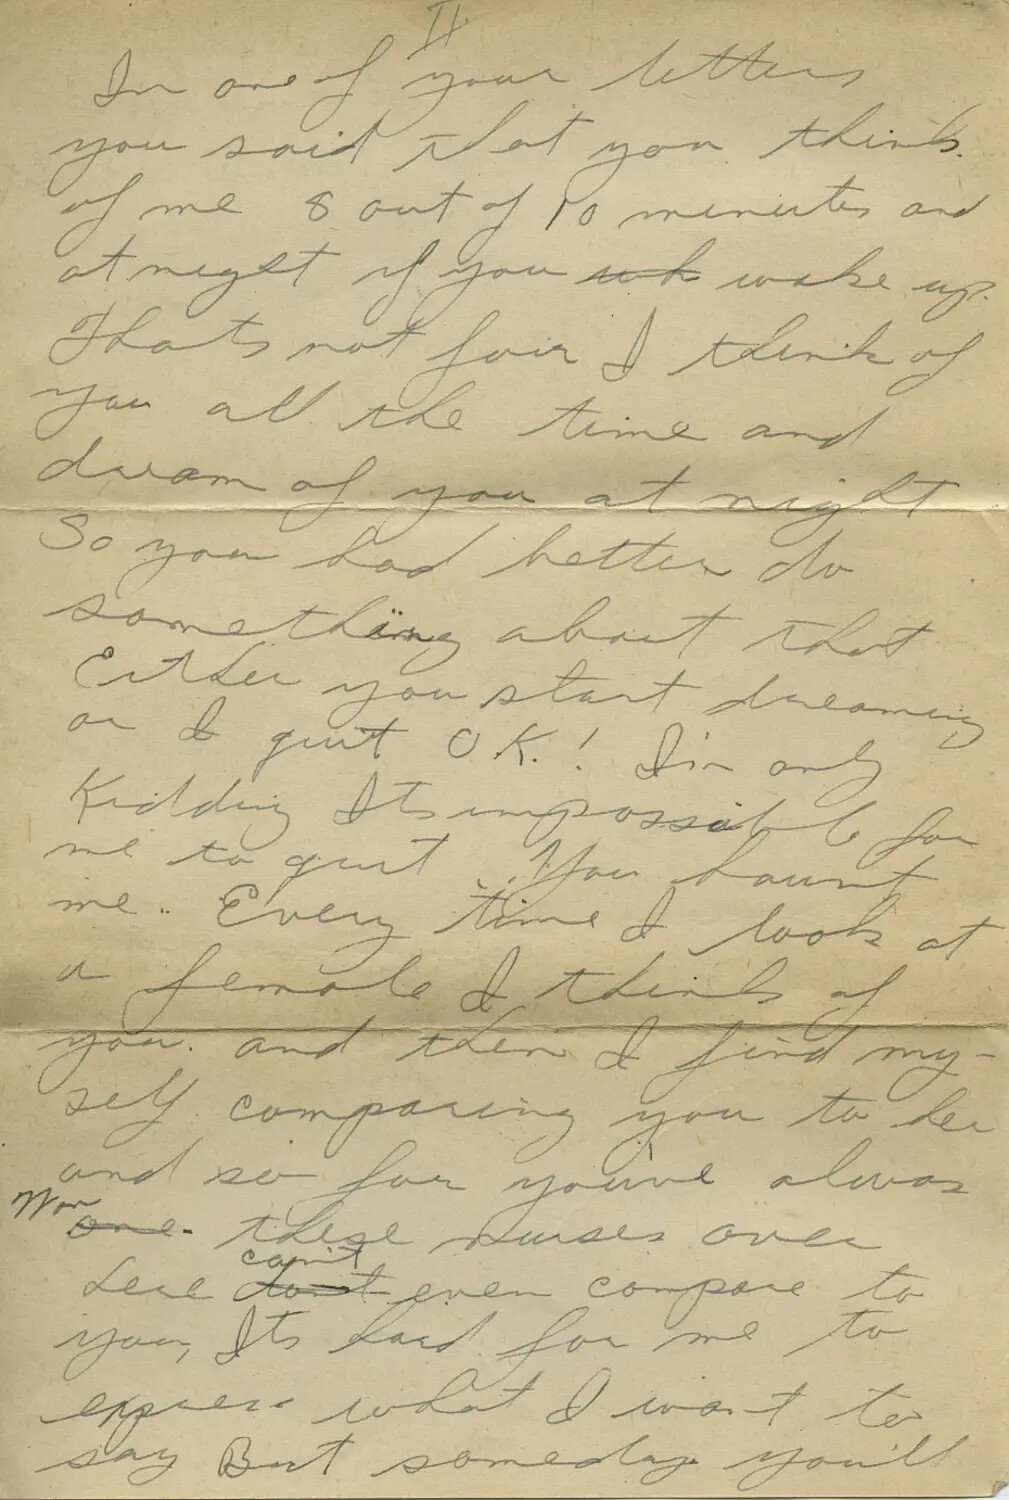 II.
In one of your letters
you said that you think
of me 8 out of 10 minutes and
at night if you wake up.
Thats not fair I think of
you all the time and
dream of you at night
So you had better do
something about that
Either you start dreaming
or I quit O.K.! I'm only
Kidding Its impossible for
me to quit. You haunt
me.. Every time I look at
a female I think of
you. and then I find my-
self comparing you to her
and so far you've always
Won
one. these nurses over
can't
here don't even compare to
you, Its hard for me to
express what I want to
say But someday you'll